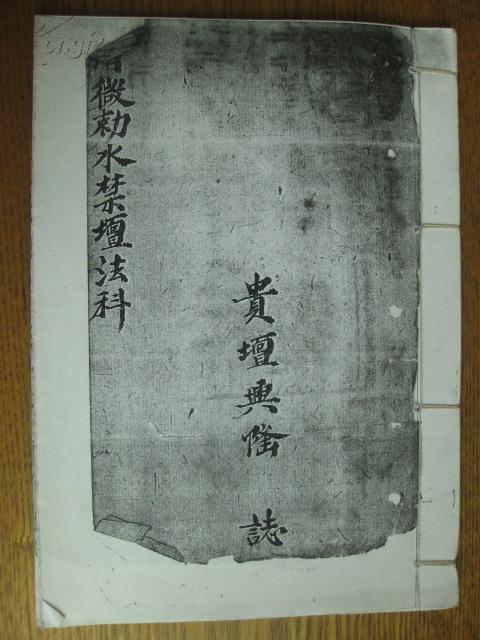 微勅水禁壇法科
貴壇興隆 誌